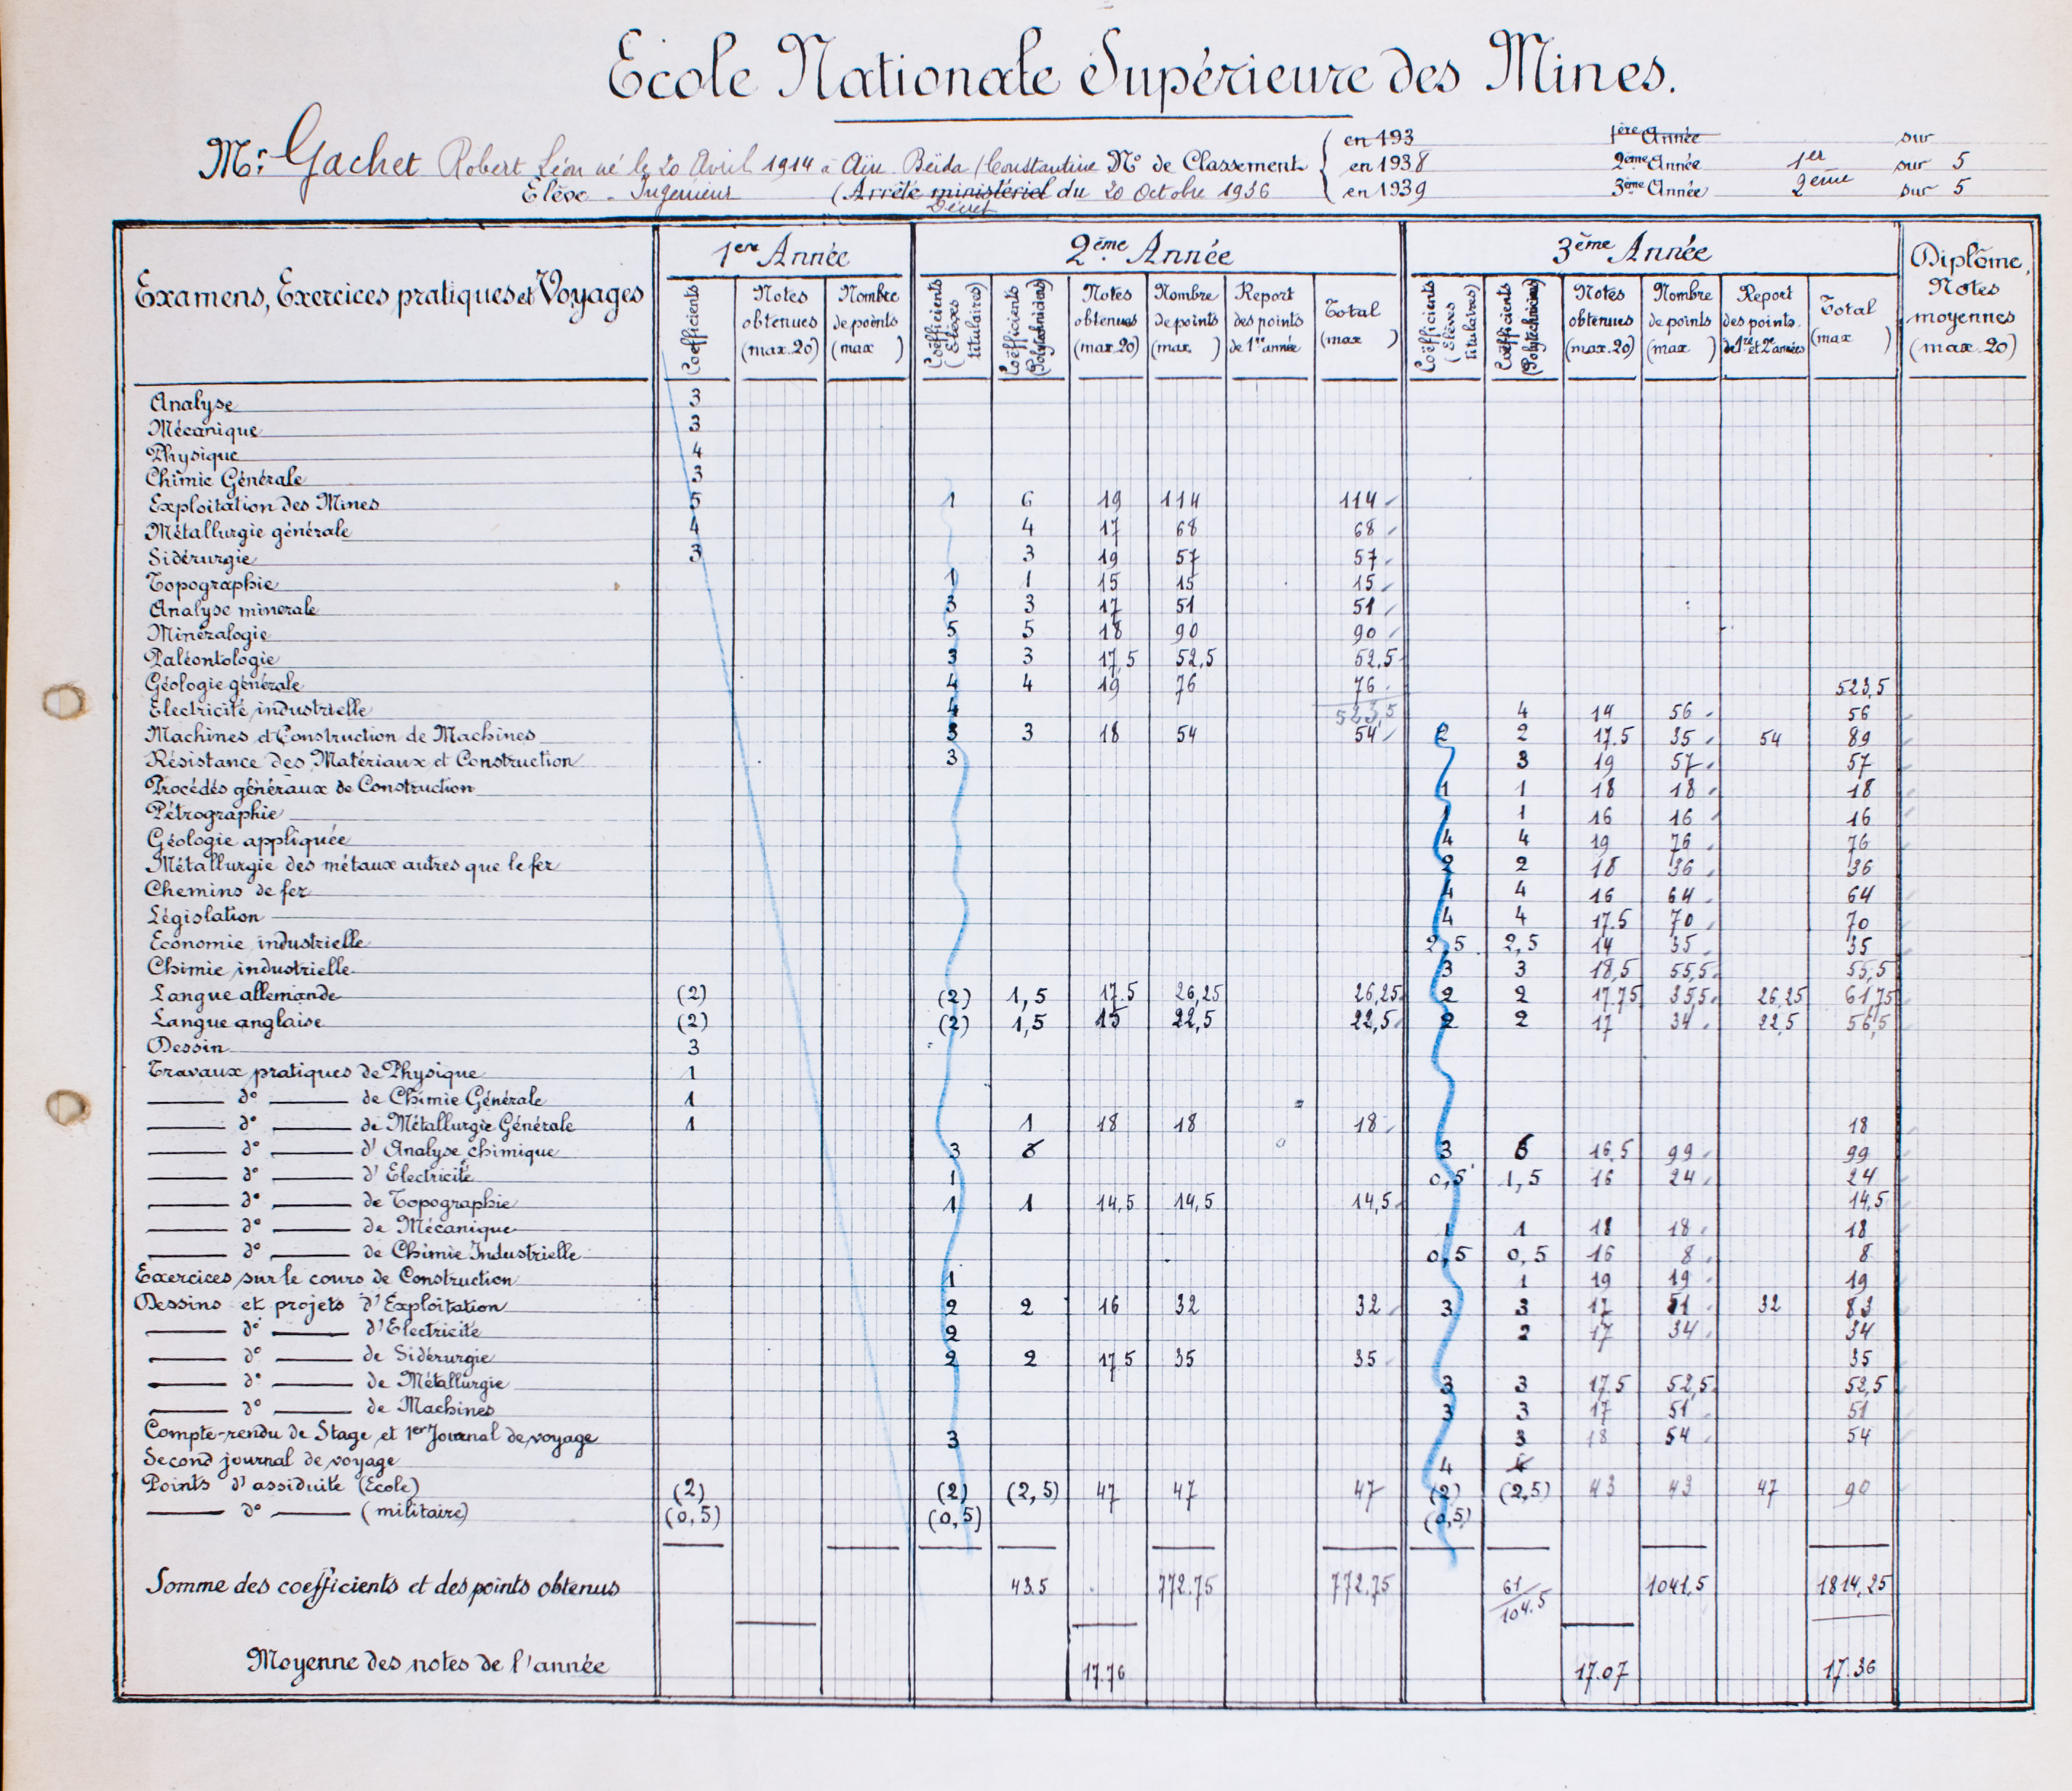 Ecole Nationale Supérieure des Mines.
Mr. Gachet Robert Léon né le 20 Avril 1914 à Aïn Beïda (Constantine No de Classement
en 193 1ère Année sur
en 1938 2ème Année 1er sur 5
en 1939 3ème Année 2ème sur 5
Élève - Ingénieur (Arrêté ministériel du 20 Octobre 1936
Décret
Examens, Exercices pratiques et Voyages 1ere Année 2ème Année 3ème Année Diplôme, Notes moyennes (max. 20)
Coëfficients Notes obtenues (max. 20) Nombre de points (max ) Coëfficients (Elèves titulaires) Coëfficients (Polytechniciens) Notes obtenues (max. 20) Nombre de points (max. ) Report des points de 1re année Total (max ) Coëfficients (Elèves titulaires) Coëfficients (Polytechniciens) Notes obtenues (max. 20) Nombre de points (max ) Report des points de 1re et 2e années Total (max )
Analyse 3
Mécanique 3
Physique 4
Chimie Générale 3
Exploitation des Mines 5 1 6 19 114 114
Métallurgie générale 4 4 17 68 68
Sidérurgie 3 3 19 57 57
Topographie 1 1 15 15 15
Analyse minerale 3 3 17 51 51
Minéralogie 5 5 18 90 90
Paléontologie 3 3 17,5 52,5 52,5
Géologie générale 4 4 19 76 76 523,5
Electricité industrielle 4 523,5 4 14 56 56
Machines et Construction de Machines 3 3 18 54 54 2 2 17.5 35 54 89
Résistance des Matériaux et Construction 3 3 19 57 57
Procédés généraux de Construction 1 1 18 18 18
Pétrographie 1 1 16 16 16
Géologie appliquée 4 4 19 76 76
Métallurgie des métaux autres que le fer 2 2 18 36 36
Chemins de fer 4 4 16 64 64
Législation 4 4 17.5 70 70
Economie industrielle 2,5 2,5 14 35 35
Chimie industrielle 3 3 18,5 55,5 55,5
Langue allemande (2) (2) 1,5 17.5 26,25 26,25 2 2 17.75 35,5 26,25 61,75
Langue anglaise (2) (2) 1,5 15 22,5 22,5 2 2 17 34 22,5 56,5
Dessin 3
Travaux pratiques de Physique 1
do de Chimie Générale 1
do de Métallurgie Générale 1 1 18 18 18 18
do d'Analyse chimique 3 3 6 16,5 99 99
do d'Electricité 1 0,5 1,5 16 24 24
do de Topographie 1 1 14,5 14,5 14,5 14,5
do de Mécanique 1 1 18 18 18
do de Chimie Industrielle 0,5 0,5 16 8 8
Exercices sur le cours de Construction 1 1 19 19 19
Dessins et projets d'Exploitation 2 2 16 32 32 3 3 17 51 32 83
do d'Electricité 2 2 17 34 34
do de Sidérurgie 2 2 17.5 35 35 35
do de Métallurgie 3 3 17.5 52,5 52,5
do de Machines 3 3 17 51 51
Compte-rendu de Stage et 1er Journal de voyage 3 3 18 54 54
Second journal de voyage 4
Points d'assiduité (Ecole) (2) (2) (2,5) 47 47 47 (2) (2,5) 43 43 47 90
do (militaire) (0,5) (0,5) (0,5)
Somme des coefficients et des points obtenus 43.5 772.75 772.75 61/104.5 1041,5 1814,25
Moyenne des notes de l'année 17.76 17.07 17.36